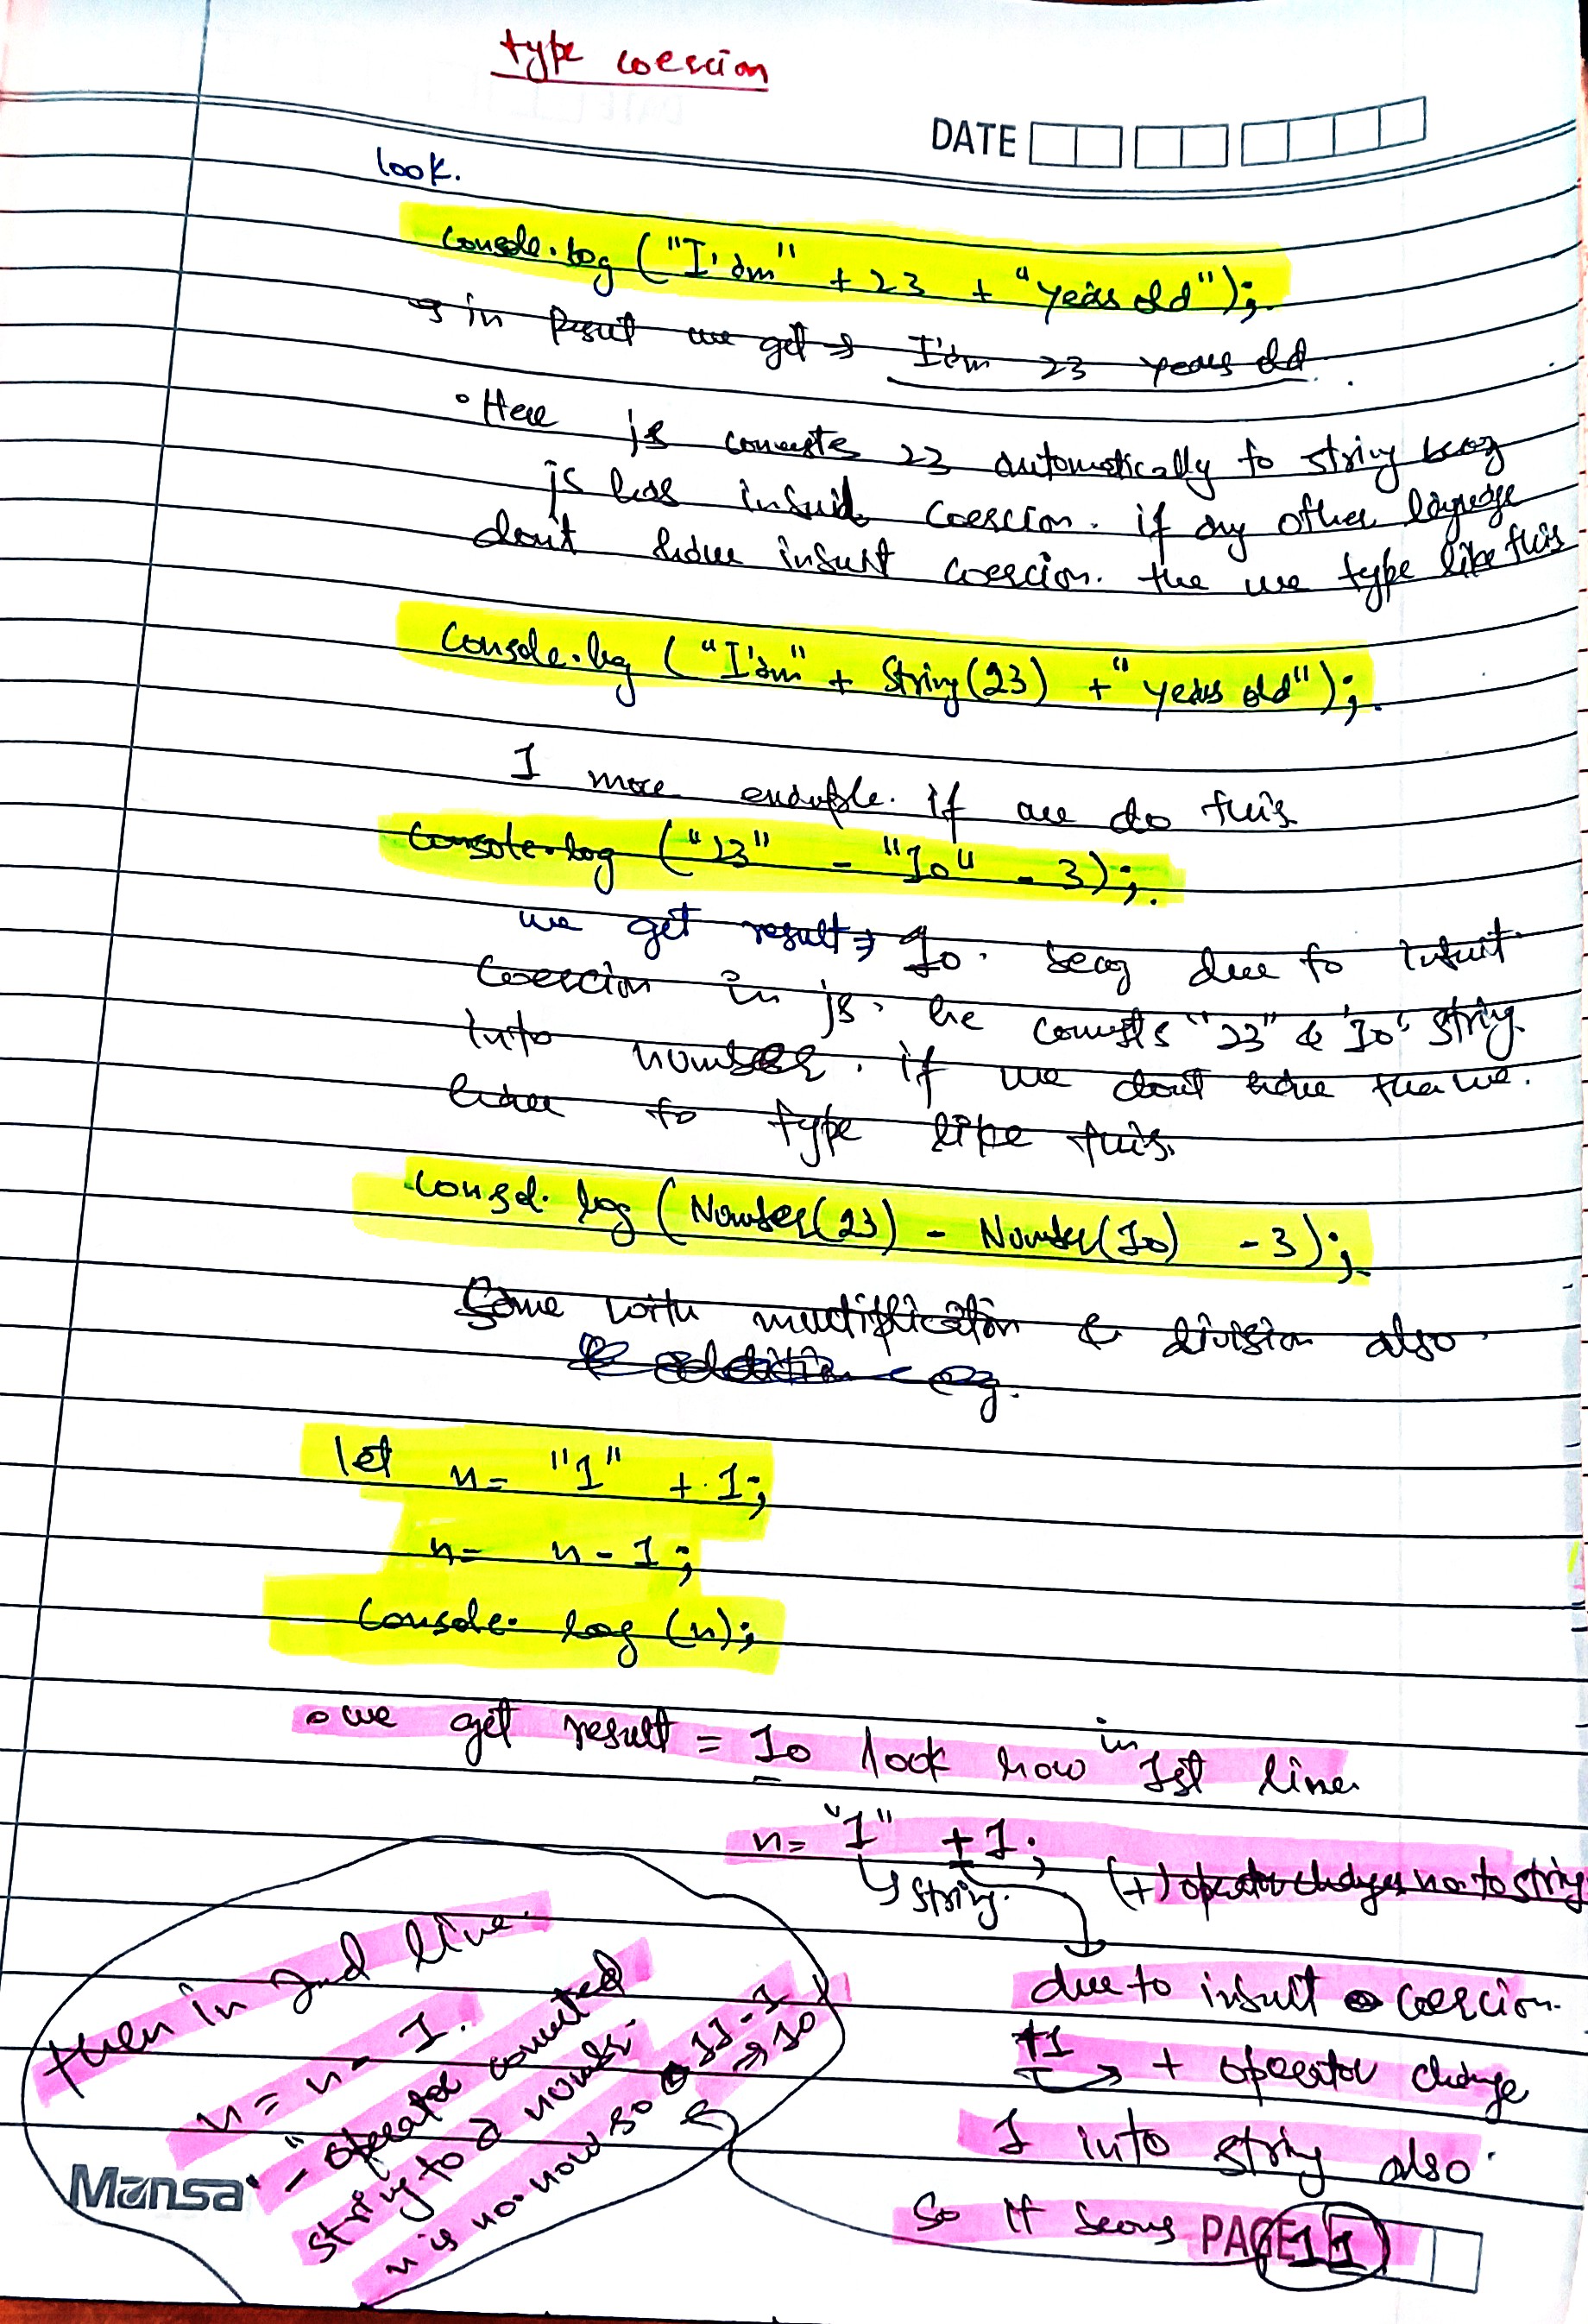 type coercion
DATE
look.
console.log ("I'am" + 23 + "years old");
→ in result we get → I'am 23 years old.
• Here js converts 23 automatically to string bcoz
js has insuit coercion. if any other language
don't have insuit coercion. the we type like this
console.log ("I'am" + String(23) + "years old");
1 more example. if are do this
console.log ("23" - "10" - 3);
we get result → 10. becoz due to insuit
coercion in js. he converts "23" & '10' string
into number. if we don't have then we.
have to type like this.
consol.log (Number(23) - Number(10) - 3);
Same with multiplication & division also.
eg.
let n = "1" + 1;
n = n - 1;
console.log (n);
• we get result = 10 look how in 1st line
n = "1" + 1; (+) operator changes no. to string
↳ string.
due to insuit coercion.
+1 → + operator change
1 into string also.
So it 11
PAGE
then in 2nd line.
n = n - 1.
"- operator converted
string to a number.
n is no. now so 11-1
→ 10
Mansa